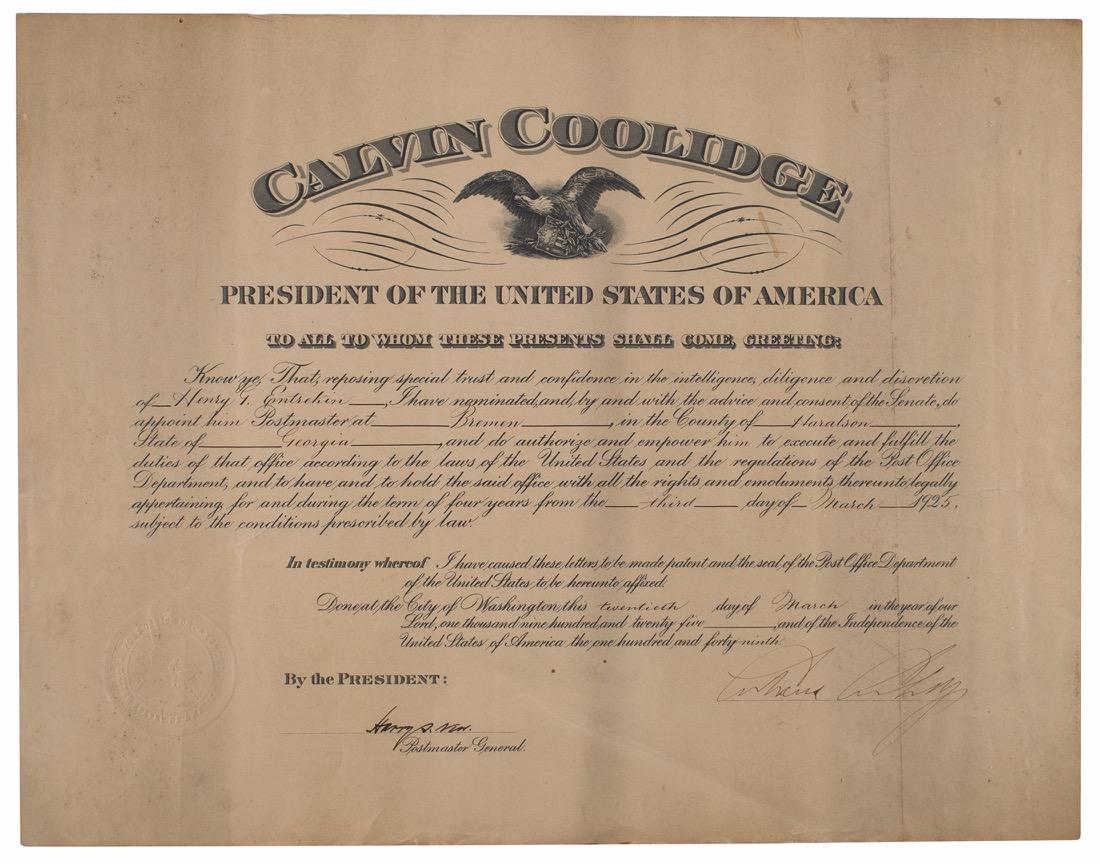 CALVIN COOLIDGE
PRESIDENT OF THE UNITED STATES OF AMERICA
TO ALL TO WHOM THESE PRESENTS SHALL COME, GREETING:
Know ye, That, reposing special trust and confidence in the intelligence, diligence and discretion
of Henry T. Entrekin, I have nominated, and, by and with the advice and consent of the Senate, do
appoint him Postmaster at Bremen, in the County of Haralson,
State of Georgia, and do authorize and empower him to execute and fulfill the
duties of that office according to the laws of the United States and the regulations of the Post Office
Department, and to have and to hold the said office, with all the rights and emoluments thereunto legally
appertaining, for and during the term of four years from the third day of March 1925,
subject to the conditions prescribed by law.
In testimony whereof I have caused these letters to be made patent, and the seal of the Post Office Department
of the United States to be hereunto affixed.
Done at the City of Washington this twentieth day of March in the year of our
Lord, one thousand nine hundred and twenty five, and of the Independence of the
United States of America the one hundred and forty ninth.
By the PRESIDENT:
Calvin Coolidge
Harry S. New.
Postmaster General.